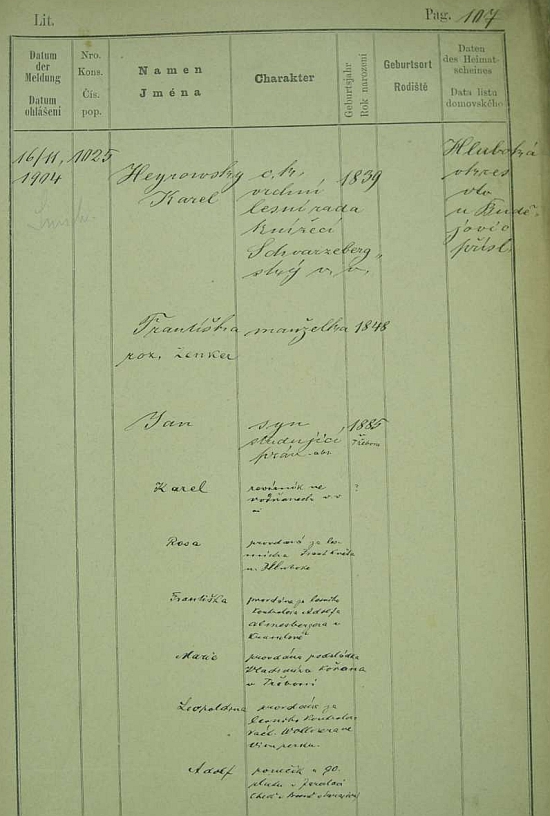 Lit.
Pag. 107
Datum der Meldung
Datum ohlášení
Nro. Kons.
Čís. pop.
Namen
Jména
Charakter
Geburtsjahr
Rok narození
Geburtsort
Rodiště
Daten des Heimat-scheines
Data listu domovského
16/11, 1904
1025
Heyrowsky
Karel
c. k.
vrchní
lesní rada
knížecí
Schwarzeberg
ský v. v.
1839
Hluboká
okres
u Budě
jovic
přísl.
Františka
roz. Zenker
manželka
1848
Jan
syn
studující
práv abs.
1885
Třeboň
Karel
revírník ve
?
Rosa
provdaná za les
Františka
provdána za
kontrolora Adolfa
Krumlově
Marie
provdána
Vladimíra Kořána
v Třeboni
Leopoldina
provdaná za
lesního kontrolora
Vimperku.
Adolf
poručík u 90.
pluku